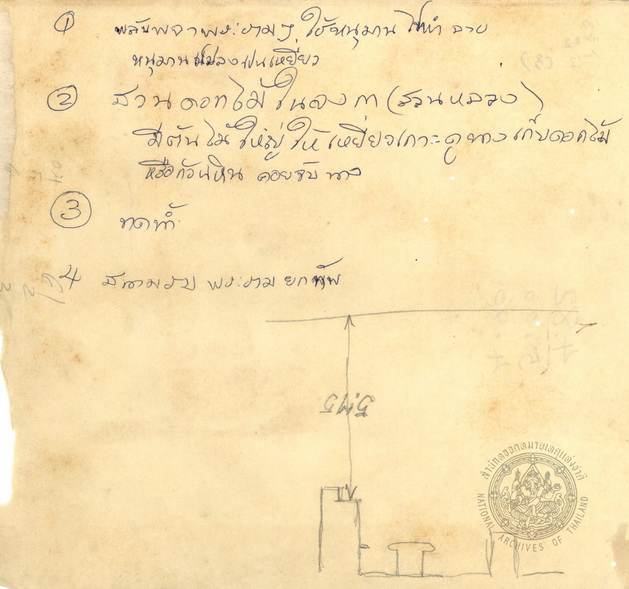 ① พลับพลาพระราม ใช้หนุมานไปทำลาย
หนุมานแปลงเป็นเหยี่ยว
② สวนดอกไม้ในลงกา (สวนหลวง)
มีต้นไม้ใหญ่ให้เหยี่ยวเกาะดูนางเก็บดอกไม้
หรือก้อนหิน คอยจับนาง
③ ทดน้ำ
4 สนามรบ พระรามยกทัพ
5.45
สำนักหอจดหมายเหตุแห่งชาติ
NATIONAL ARCHIVES OF THAILAND